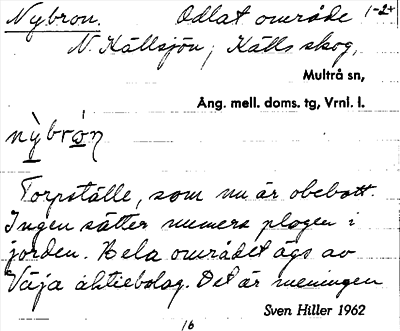 Nybron. Odlat område 1-2x
N. Källsjön, Källs skog,
Multrå sn,
Ång. mell. doms. tg, Vrnl. l.
nỳbrón
Torpställe, som nu är obebott.
Ingen sätter numera plogen i
jorden. Hela området ägs av
Väja aktiebolag. Det är meningen
Sven Hiller 1962
16